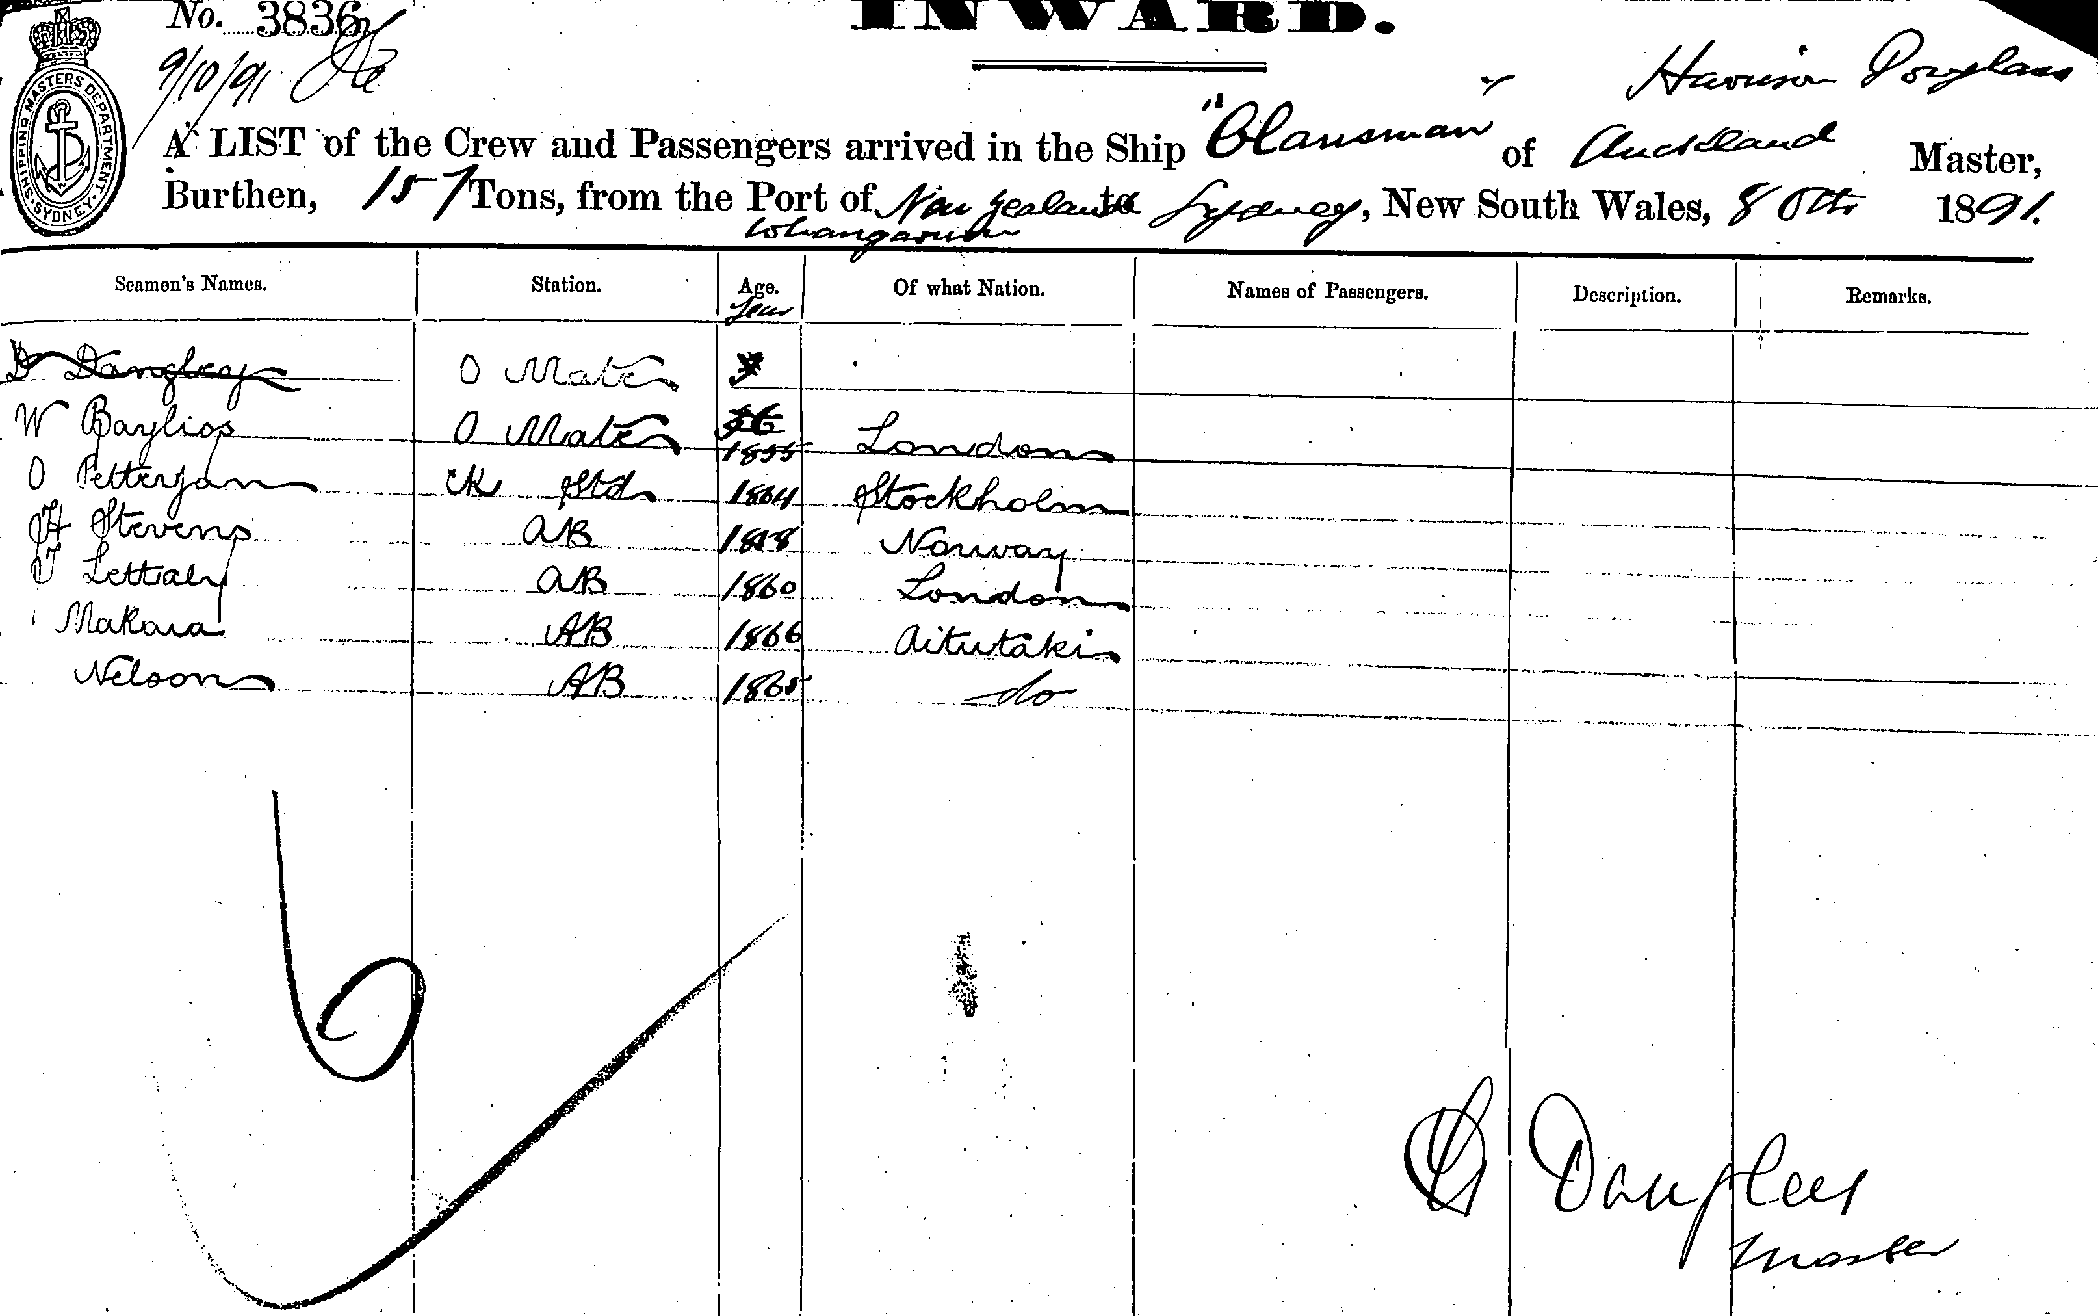 No. 3836
INWARD.
9/10/91
SHIPPING MASTERS DEPARTMENT
SYDNEY
Harrison Douglass
A LIST of the Crew and Passengers arrived in the Ship "Clansman" of Auckland Master,
Burthen, 157 Tons, from the Port of New Zealand to Sydney, New South Wales, 8 Octr 1891.
Whangaroa
Seamen's Names. Station. Age. Of what Nation. Names of Passengers. Description. Remarks.
Year
D Dangley O Mate
W Bayliss O Mate 36
1855 London
O Petterson CK Std 1864 Stockholm
H Stevens AB Norway
T AB 1860 London
Makara AB 1866 Aitutaki
Nelson AB 1865 do
6
Douglass
Master